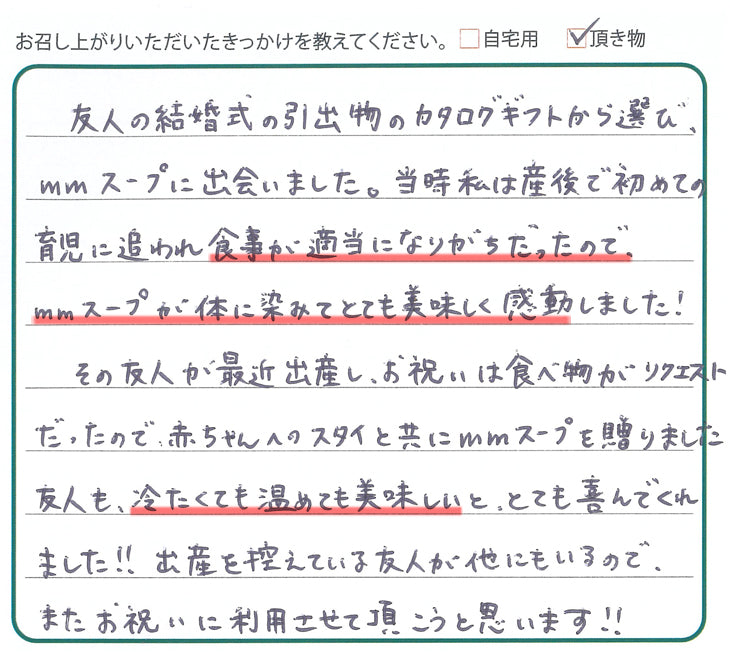 お召し上がりいただいたきっかけを教えてください。 □自宅用 ☑頂き物
友人の結婚式の引出物のカタログギフトから選び、
mmスープに出会いました。当時私は産後で初めての
育児に追われ食事が適当になりがちだったので、
mmスープが体に染みてとても美味しく感動しました!
その友人が最近出産し、お祝いは食べ物がリクエスト
だったので、赤ちゃんへのスタイと共にmmスープを贈りました
友人も、冷たくても温めても美味しいと、とても喜んでくれ
ました!! 出産を控えている友人が他にもいるので、
またお祝いに利用させて頂こうと思います!!